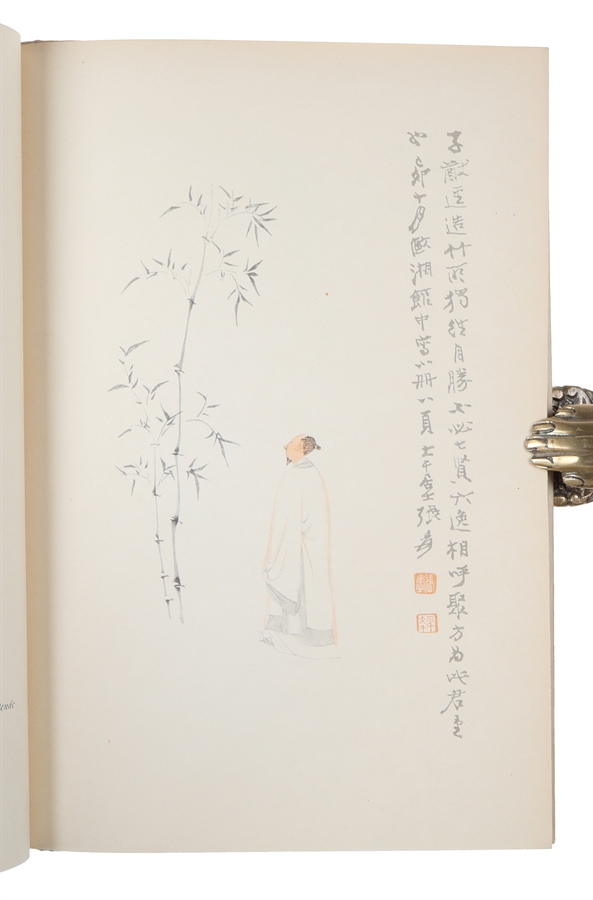 子猷逕造竹所獨往自勝不必七賢六逸相呼聚方為此君重
也己卯十月歐湘館中寫小冊八頁大千居士張爰